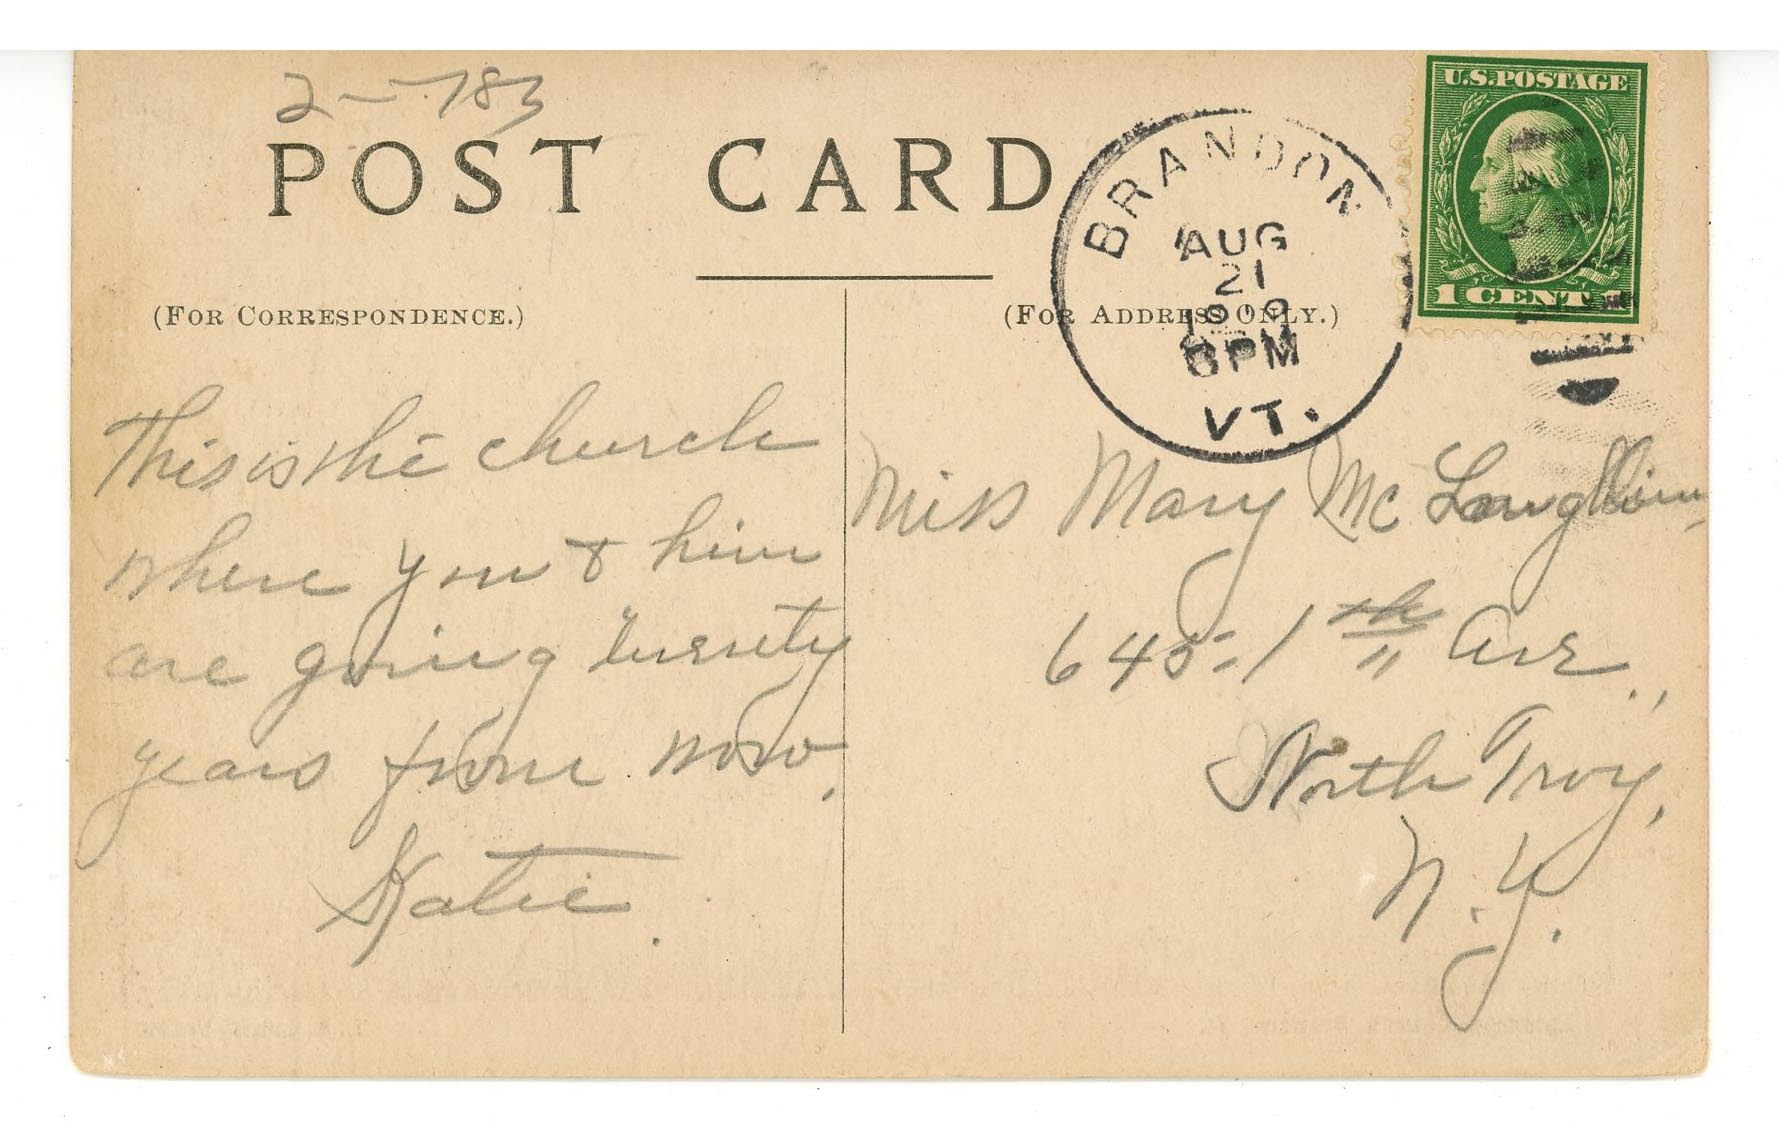 2-783
POST CARD
(FOR CORRESPONDENCE.)
(FOR ADDRESS ONLY.)
BRANDON
AUG
21
PM
VT.
U.S. POSTAGE
1 CENT
This is the church
where you & him
are going twenty
years from now.
Katie.
Miss Mary McLaughlin,
645-1th Ave.,
North Troy,
N.Y.